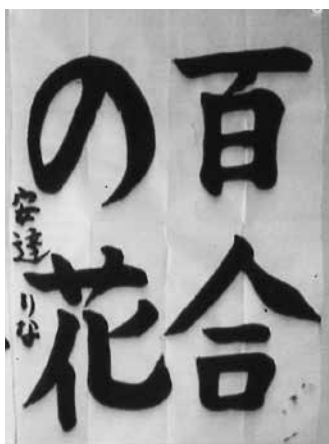 百合
の花
安達りな